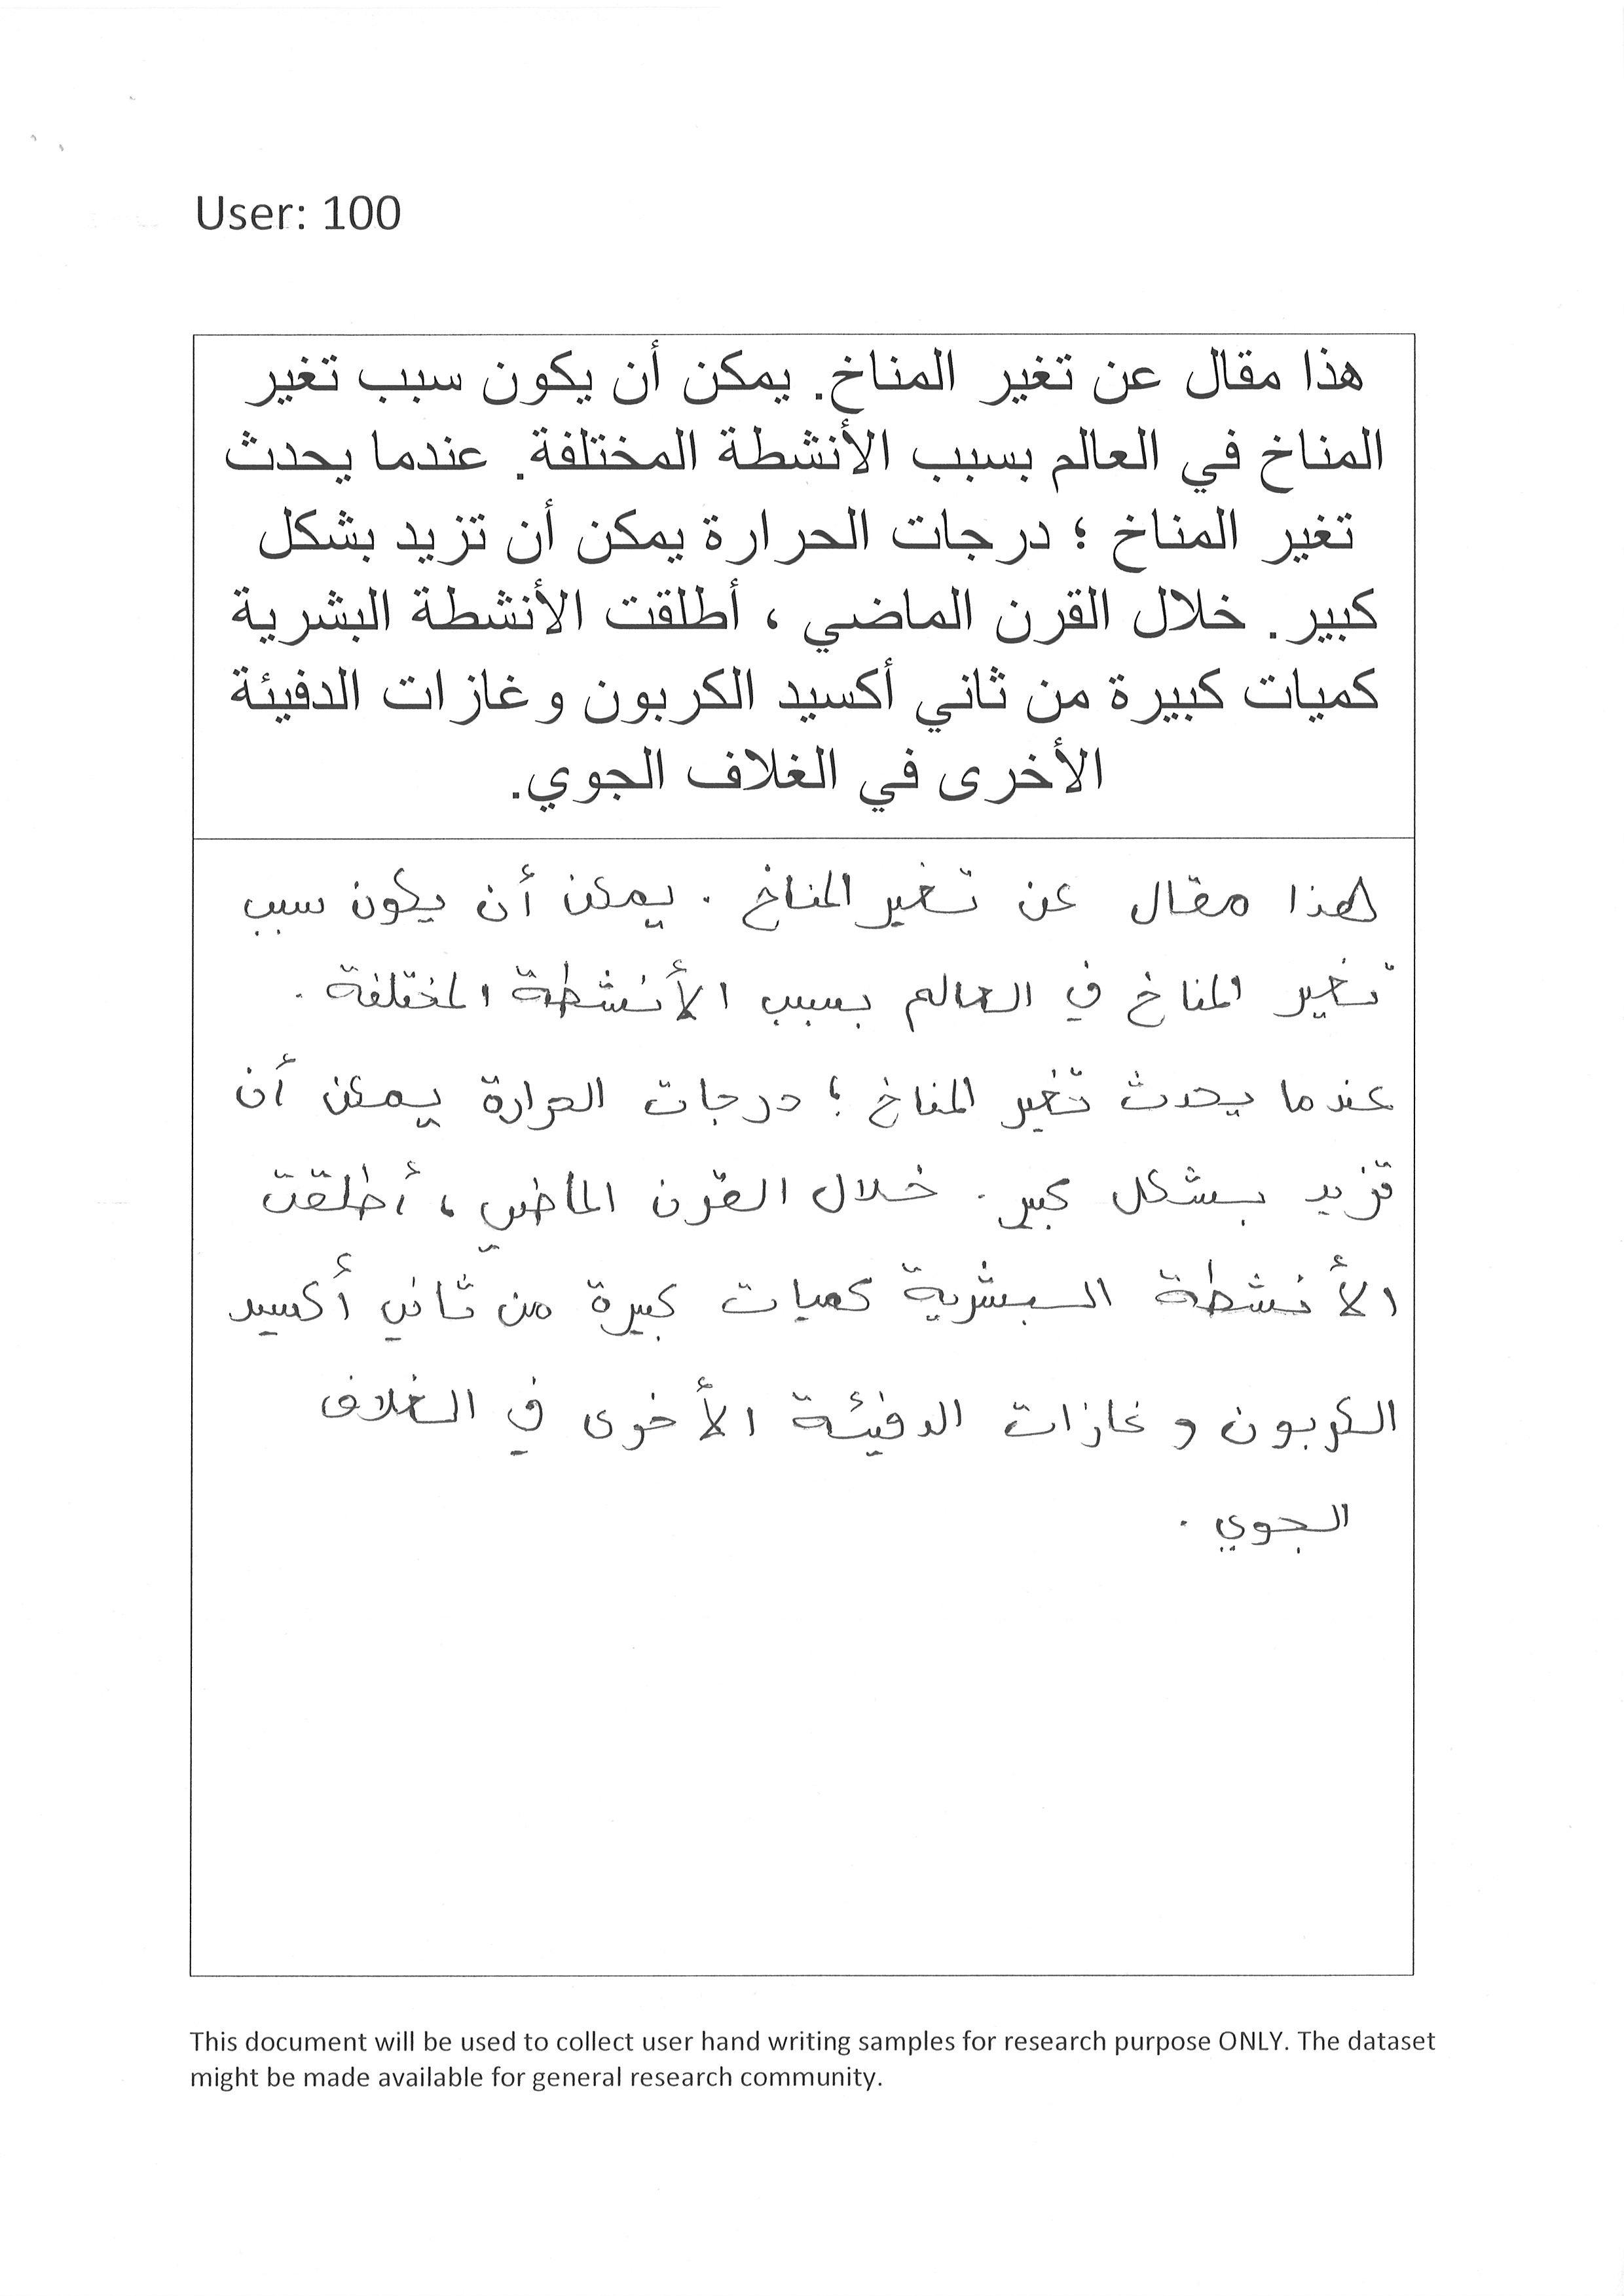 User: 100
هذا مقال عن تغير المناخ. يمكن أن يكون سبب تغير
المناخ في العالم بسبب الأنشطة المختلفة. عندما يحدث
تغير المناخ ؛ درجات الحرارة يمكن أن تزيد بشكل
كبير. خلال القرن الماضي ، أطلقت الأنشطة البشرية
كميات كبيرة من ثاني أكسيد الكربون وغازات الدفيئة
الأخرى في الغلاف الجوي.
هذا مقال عن تغير المناخ . يمكن أن يكون سبب
تغير المناخ في العالم بسبب الأنشطة المختلفة .
عندما يحدث تغير المناخ ؛ درجات الحرارة يمكن أن
تزيد بشكل كبير . خلال القرن الماضي ، أطلقت
الأنشطة البشرية كميات كبيرة من ثاني أكسيد
الكربون و غازات الدفيئة الأخرى في الغلاف
الجوي .
This document will be used to collect user hand writing samples for research purpose ONLY. The dataset
might be made available for general research community.